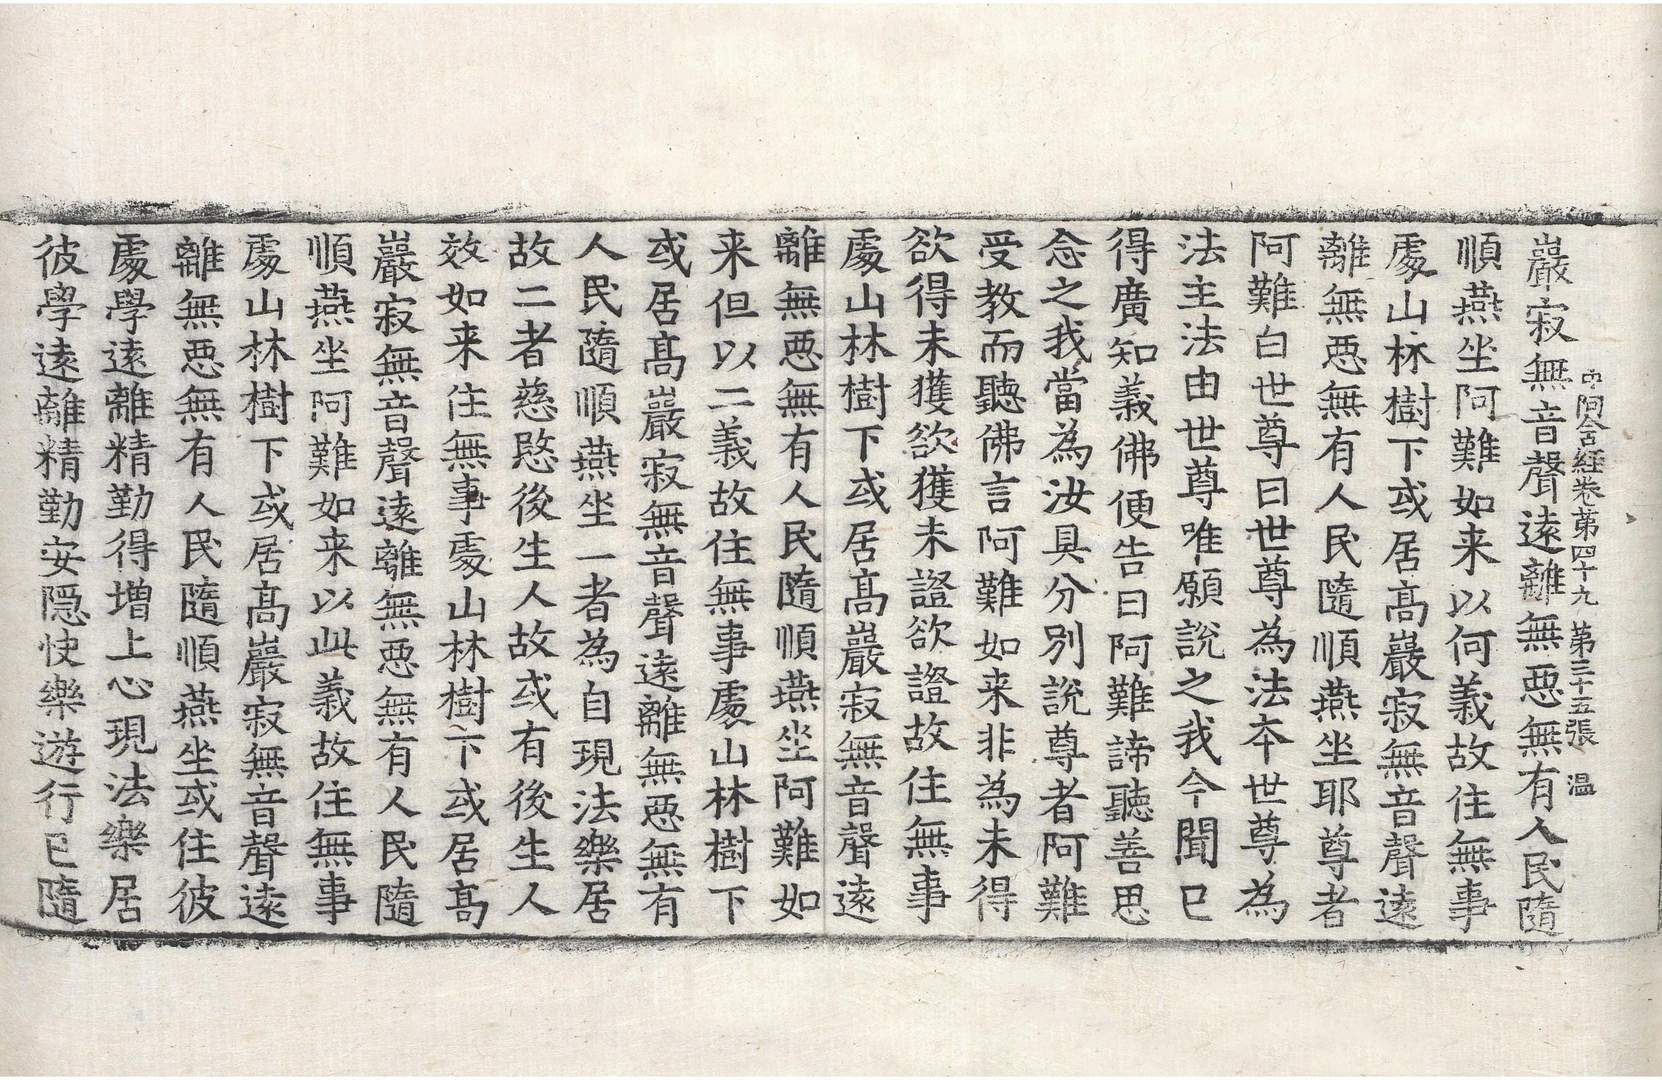 中阿含経卷第四十九 第三十五張 溫
巖寂無音聲遠離無惡無有人民隨
順燕坐阿難如来以何義故住無事
處山林樹下或居髙巖寂無音聲遠
離無惡無有人民隨順燕坐耶尊者
阿難白世尊曰世尊為法本世尊為
法主法由世尊唯願說之我今聞已
得廣知義佛便告曰阿難諦聽善思
念之我當為汝具分別說尊者阿難
受教而聽佛言阿難如来非為未得
欲得未獲欲獲未證欲證故住無事
處山林樹下或居髙巖寂無音聲遠
離無惡無有人民隨順燕坐阿難如
来但以二義故住無事處山林樹下
或居髙巖寂無音聲遠離無惡無有
人民隨順燕坐一者為自現法樂居
故二者慈愍後生人故或有後生人
效如来住無事處山林樹下或居髙
巖寂無音聲遠離無惡無有人民隨
順燕坐阿難如来以此義故住無事
處山林樹下或居髙巖寂無音聲遠
離無惡無有人民隨順燕坐或住彼
處學遠離精勤得增上心現法樂居
彼學遠離精勤安隱快樂遊行已隨